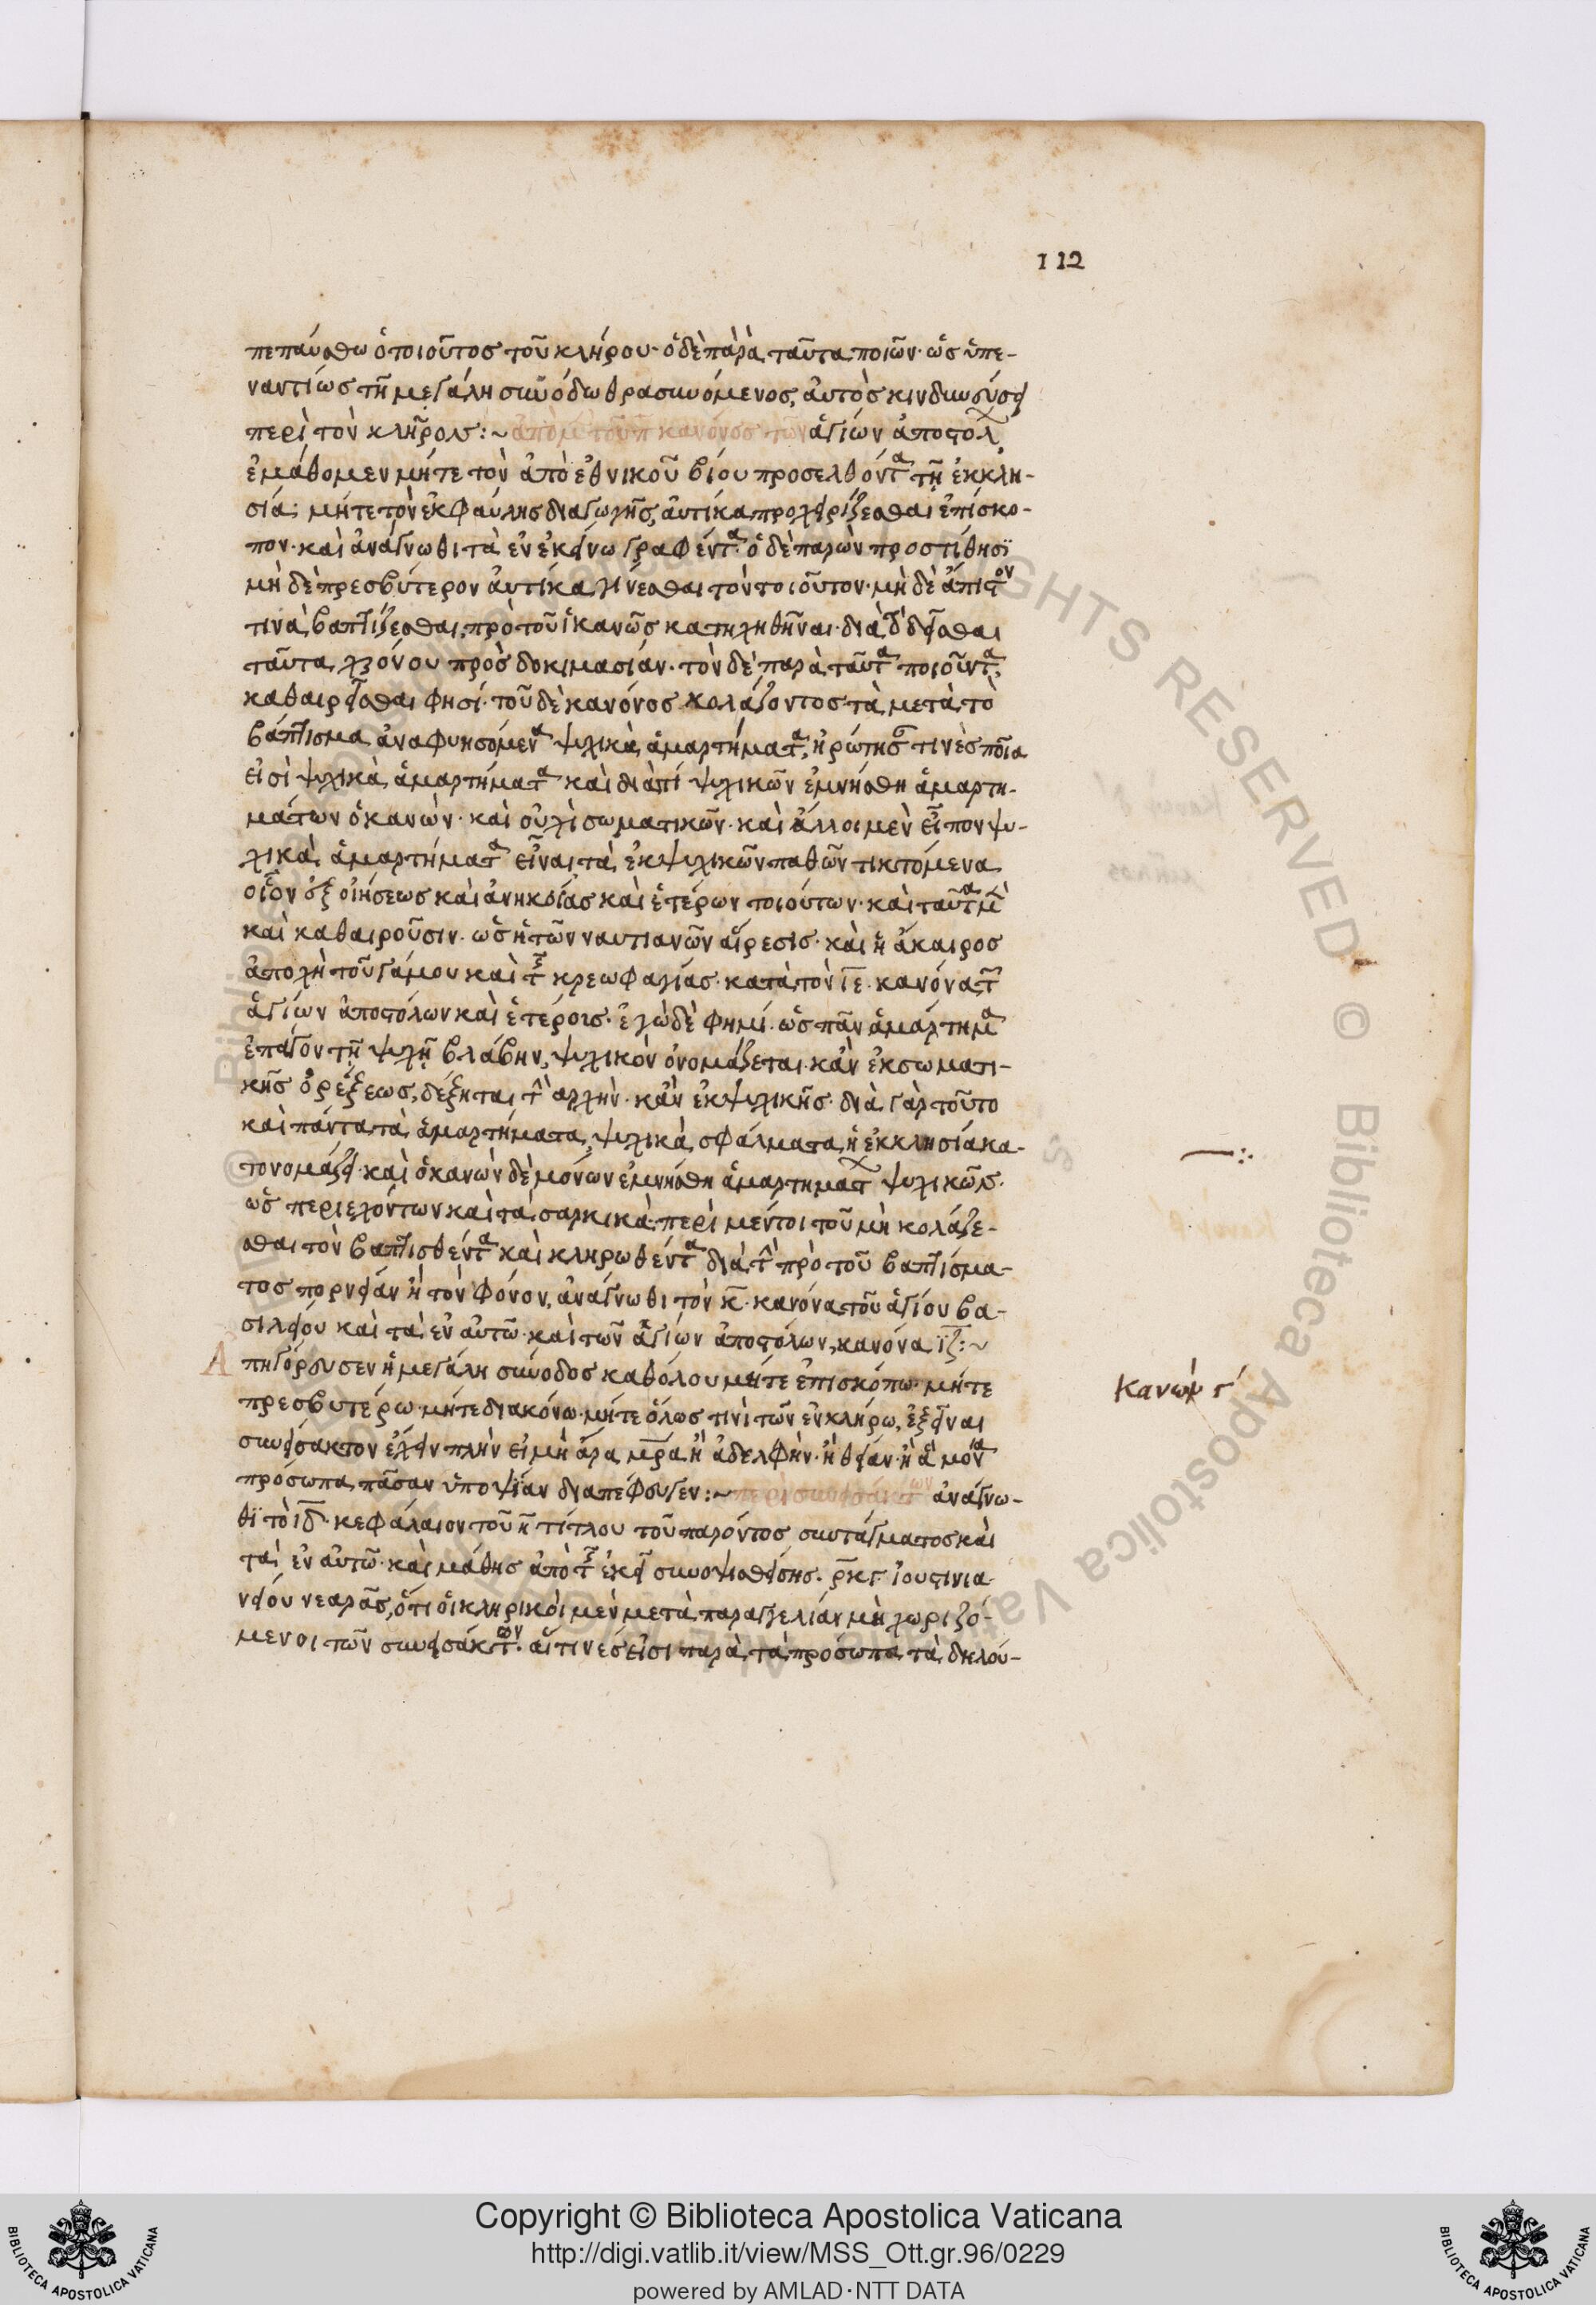 112
πεπαύσθω ὁ τοιοῦτος τοῦ κλήρου· ὁ δὲ παρὰ ταῦτα ποιῶν· ὡς ὑπε-
ναντίως τῇ μεγάλη συνόδω θρασυνόμενος, αὐτὸς κινδυνεύσει
περὶ τὸν κλῆρον :~ ἀπὸ μὲν τοῦ π κανόνος τῶν ἁγίων ἀποστόλ
ἐμάθομεν μήτε τὸν ἀπὸ ἐθνικοῦ βίου προσελθόντα τῇ ἐκκλη-
σία· μήτε τὸν ἐκ φαύλης διαγωγῆς, αὐτίκα προχειρίζεσθαι ἐπίσκο-
πον· καὶ ἀνάγνωθι τὰ ἐν ἐκείνω γραφέντα· ὁ δὲ παρὼν προστίθησϊ
μὴ δὲ πρεσβύτερον αὐτίκα γίνεσθαι τὸν τοιοῦτον· μὴ δὲ ἄπιστον
τινὰ βαπτίζεσθαι, πρὸ τοῦ ἱκανῶς κατηχηθῆναι· διὰ τὸ δεῖσθαι
ταῦτα χρόνου πρὸς δοκιμασίαν· τὸν δὲ παρὰ ταῦτα ποιοῦντα,
καθαιρεῖσθαι φησί· τοῦ δὲ κανόνος κολάζοντος τὰ μετὰ τὸ
βάπτισμα ἀναφυησόμενα ψυχικὰ ἁμαρτήματα, ἠρώτησάν τινὲς ποῖα
εἰσὶ ψυχικὰ ἁμαρτήματα καὶ διατί ψυχικῶν ἐμνήσθη ἁμαρτη-
μάτων ὁ κανών· καὶ οὐχὶ σωματικῶν· καὶ ἄλλοι μὲν εἶπον ψυ-
χικὰ ἁμαρτήματα εἶναι τὰ ἐκ ψυχικῶν παθῶν τικτόμενα
οἷον ἐξ οἰήσεως καὶ ἀνηκοΐας καὶ ἑτέρων τοιούτων· καὶ ταῦτα μὲν
καὶ καθαιροῦσιν· ὡς ἡ τῶν ναυτιανῶν αἵρεσις· καὶ ἡ ἄκαιρος
ἀποχὴ τοῦ γάμου καὶ τῆς κρεωφαγίας· κατὰ τὸν ιε· κανόνα τῶν
ἁγίων ἀποστόλων καὶ ἑτέροις· ἐγὼ δὲ φημί· ὡς πᾶν ἁμάρτημα
ἐπάγον τῇ ψυχῇ βλάβην, ψυχικὸν ὀνομάζεται· κἂν ἐκ σωματι-
κῆς ὀρέξεως, δέξηται τὴν ἀρχήν· κἂν ἐκ ψυχικῆς· διὰ γὰρ τοῦτο
καὶ πάντα τὰ ἁμαρτήματα, ψυχικὰ σφάλματα, ἡ ἐκκλησία κα-
τονομάζει· καὶ ὁ κανὼν δὲ μόνων ἐμνήσθη ἁμαρτημάτων ψυχικῶν·
ὡς περιεχόντων καὶ τὰ σαρκικά· περὶ μέντοι τοῦ μὴ κολάζε-
σθαι τὸν βαπτισθέντα καὶ κληρωθέντα διὰ τὴν πρὸ τοῦ βαπτίσμα-
τος πορνείαν ἢ τὸν φόνον, ἀνάγνωθι τὸν κ· κανόνα τοῦ ἁγίου βα-
σιλείου καὶ τὰ ἐν αὐτῶ· καὶ τῶν ἁγίων ἀποστόλων, κανόνα ιζ :~
Ἀπηγόρευσεν ἡ μεγάλη σύνοδος καθόλου μήτε ἐπισκόπω· μήτε
πρεσβυτέρω· μήτε διακόνω· μήτε ὅλως τινὶ τῶν ἐν κλήρω, ἐξεῖναι
συνείσακτον ἔχειν πλὴν εἰ μὴ ἄρα μρα ἢ ἀδελφὴν· ἢ θείαν· ἢ ἃ μόνα
πρόσωπα πᾶσαν ὑποψίαν διαπέφευγεν :~ περὶ συνεισάκτων ἀνάγνω-
θϊ τὸ ιδ· κεφάλαιον τοῦ η τίτλου τοῦ παρόντος συντάγματος καὶ
τὰ ἐν αὐτῶ· καὶ μάθης ἀπὸ τῆς ἐκεῖ συνοψισθείσης· ρκγ ἰουστινια-
νείου νεαρᾶς, ὅτι οἱ κληρικοὶ μὲν μετὰ παραγγελίαν μὴ χωριζό-
μενοι τῶν συνεισάκτων· αἵ τινές εἰσι παρὰ τὰ πρόσωπα τὰ δηλού-
Κανών γ
Copyright © Biblioteca Apostolica Vaticana
http://digi.vatlib.it/view/MSS_Ott.gr.96/0229
powered by AMLAD·NTT DATA